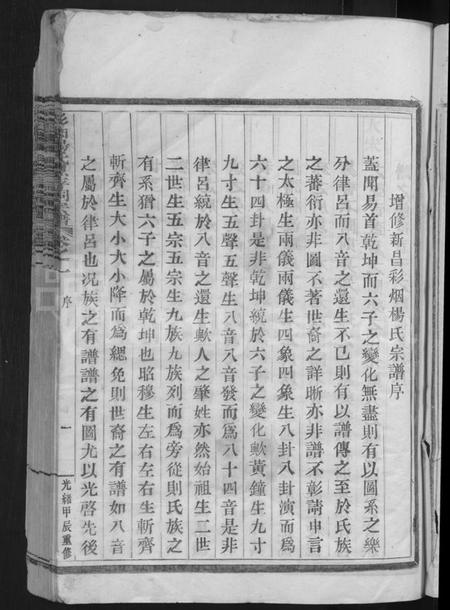 增修新昌彩烟楊氏宗譜序
蓋聞易首乾坤而六子之變化無盡則有以圖系之樂
分律呂而八音之還生不已則有以譜傳之至於氏族
之蕃衍亦非圖不著世裔之詳晰亦非譜不彰請申言
之太極生兩儀兩儀生四象四象生八卦八卦演而為
六十四卦是非乾坤統於六子之變化歟黃鐘生九寸
九寸生五聲五聲生八音八音發而為八十四音是非
律呂統於八音之還生歟人之肇姓亦然始祖生二世
二世生五宗五宗生九族九族列而為旁從則氏族之
有系猶六子之屬於乾坤也昭穆生左右左右生斬齊
斬齊生大小大小降而為緦免則世裔之有譜如八音
之屬於律呂也況族之有譜譜之有圖尤以光啓先後
序
一
光緒甲辰重修